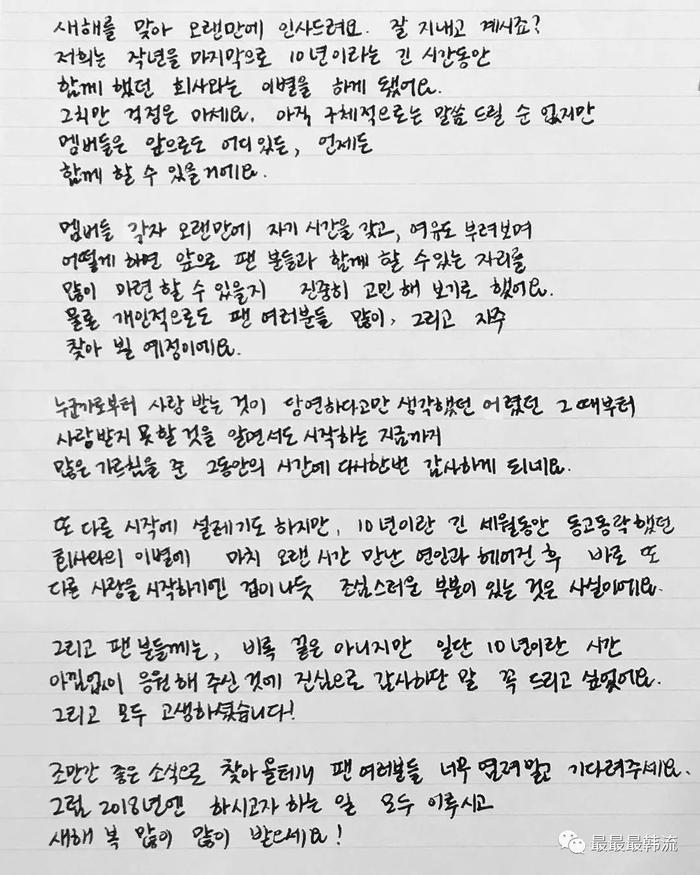 새해를 맞아 오랜만에 인사드려요. 잘 지내고 계시죠?
저희는 작년을 마지막으로 10년이라는 긴 시간동안
함께 했던 회사와는 이별을 하게 됐어요.
그치만 걱정은 마세요. 아직 구체적으로는 말씀 드릴 순 없지만
멤버들은 앞으로도 어디있든, 언제든
함께 할 수 있을거에요.
멤버들 각자 오랜만에 자기 시간을 갖고, 여유도 부려보며
어떻게 하면 앞으로 팬 분들과 함께 할 수 있는 자리를
많이 마련 할 수 있을지 진중히 고민 해 보기로 했어요.
물론 개인적으로도 팬 여러분들 많이, 그리고 자주
찾아 뵐 예정이에요.
누군가로부터 사랑 받는 것이 당연하다고만 생각했던 어렸던 그 때부터
사랑받지 못할 것을 알면서도 시작하는 지금까지
많은 가르침을 준 그동안의 시간에 다시한번 감사하게 되네요.
또 다른 시작에 설레기도 하지만, 10년이란 긴 세월동안 동고동락 했던
회사와의 이별에 마치 오랜 시간 만난 연인과 헤어진 후 바로 또
다른 사랑을 시작하기엔 겁이 나듯 조심스러운 부분이 있는 것은 사실이에요.
그리고 팬 분들께는, 비록 끝은 아니지만 일단 10년이란 시간
아낌없이 응원해 주신 것에 진심으로 감사하단 말 꼭 드리고 싶었어요.
그리고 모두 고생하셨습니다!
조만간 좋은 소식으로 찾아올테니 팬 여러분들 너무 염려말고 기다려주세요.
그럼 2018년엔 하시고자 하는 일 모두 이루시고
새해 복 많이 많이 받으세요!
最最最韩流